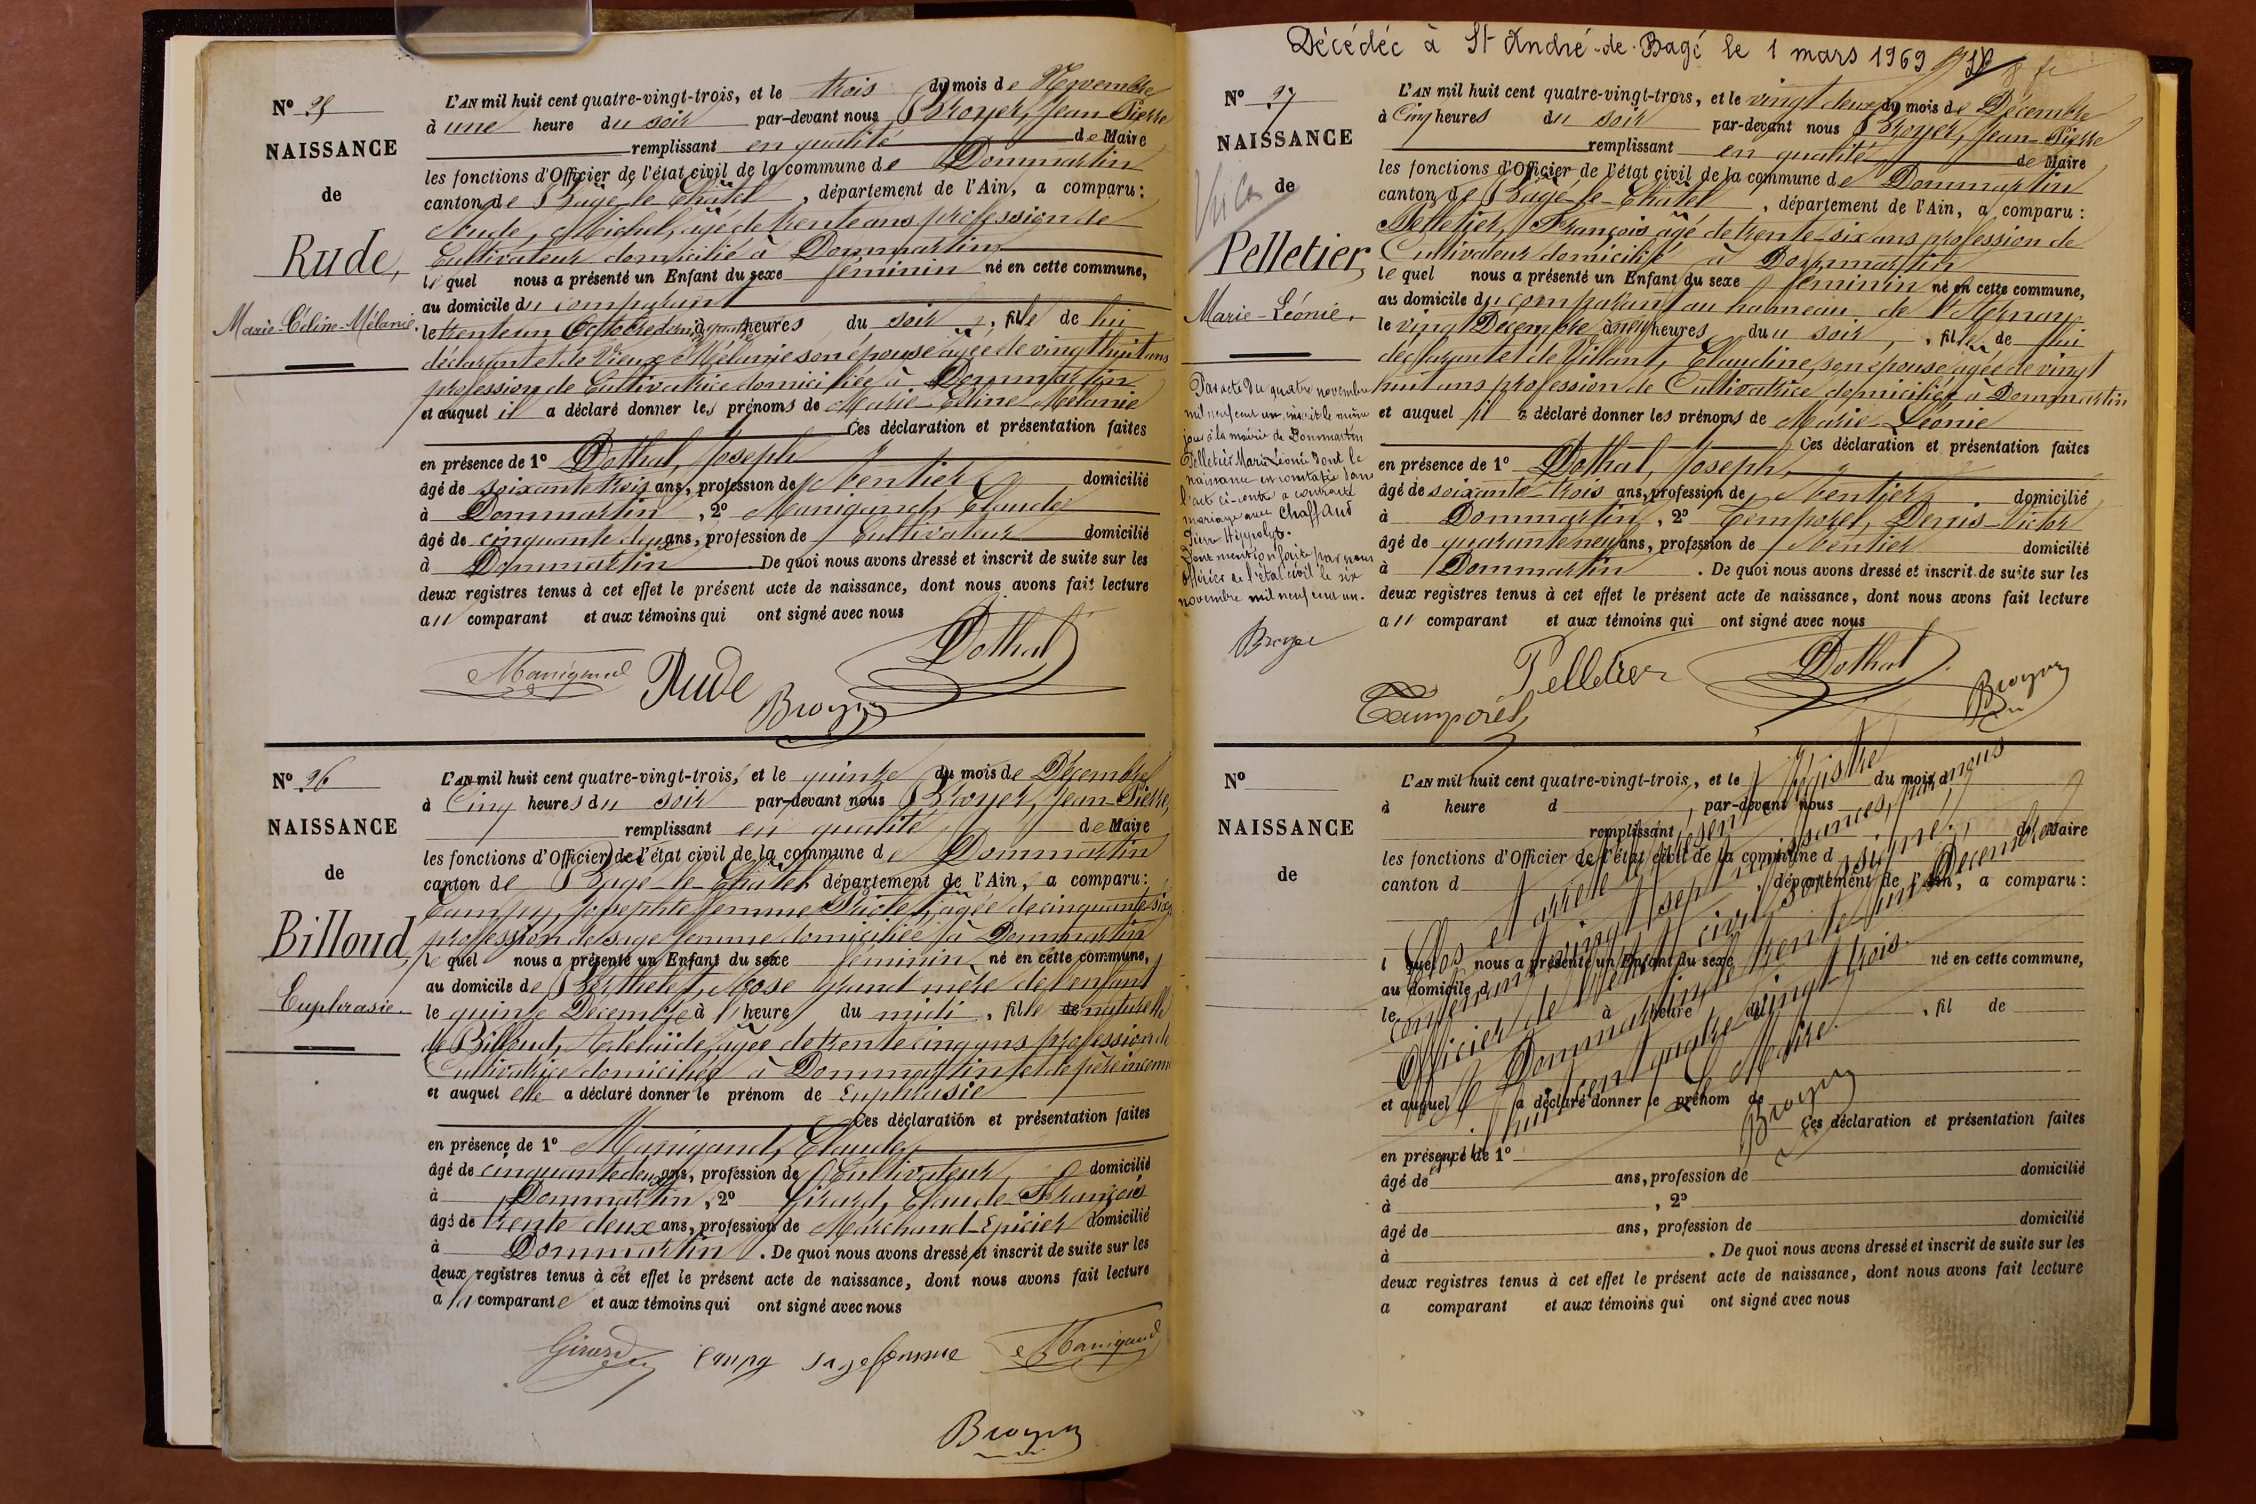 N° 25
NAISSANCE
de
Rude,
Marie-Céline-Mélanie.
L'AN mil huit cent quatre-vingt-trois, et le trois du mois de Novembre
à une heure du soir par-devant nous Broyer, Jean-Pierre
remplissant en qualité de Maire
les fonctions d'Officier de l'état civil de la commune de Dommartin
canton de Bâgé-le-Châtel, département de l'Ain, a comparu:
Rude, Michel, agé de trente ans profession de
Cultivateur domicilié à Dommartin
lequel nous a présenté un Enfant du sexe féminin né en cette commune,
au domicile du comparant
le trente un Octobre à heures du soir, fille de lui
déclarant et de Vieux Mélanie son épouse âgée de vingt huit ans
profession de Cultivatrice domiciliée à Dommartin
et auquel il a déclaré donner les prénoms de Marie-Céline-Mélanie
Ces déclaration et présentation faites
en présence de 1° Dothal, Joseph
âgé de soixante trois ans, profession de Rentier domicilié
à Dommartin, 2° Manigand, Claude
âgé de cinquante deux ans, profession de Cultivateur domicilié
à Dommartin De quoi nous avons dressé et inscrit de suite sur les
deux registres tenus à cet effet le présent acte de naissance, dont nous avons fait lecture
au comparant et aux témoins qui ont signé avec nous
Manigand Rude Dothal
Broyer
N° 26
NAISSANCE
de
Billoud,
Euphrasie.
L'AN mil huit cent quatre-vingt-trois, et le quinze du mois de Décembre
à Cinq heures du soir par-devant nous Broyer, Jean-Pierre,
remplissant en qualité de Maire
les fonctions d'Officier de l'état civil de la commune de Dommartin
canton de Bâgé-le-Châtel, département de l'Ain, a comparu:
Campy, Josephte femme âgée de cinquante six
profession de sage femme domiciliée à Dommartin
lequel nous a présenté un Enfant du sexe féminin né en cette commune,
au domicile de Berthelet, Rose grand mère de l'enfant
le quinze Décembre à heure du midi, fille de naturelle
de Billoud, Adélaïde, âgée de trente cinq ans profession de
Cultivatrice domiciliée à Dommartin et de père inconnu
et auquel elle a déclaré donner le prénom de Euphrasie
Ces déclaration et présentation faites
en présence de 1° Manigand, Claude,
âgé de cinquante deux ans, profession de Cultivateur domicilié
à Dommartin, 2° Girard, Claude-François
âgé de trente deux ans, profession de Marchand-Epicier domicilié
à Dommartin. De quoi nous avons dressé et inscrit de suite sur les
deux registres tenus à cet effet le présent acte de naissance, dont nous avons fait lecture
à la comparante et aux témoins qui ont signé avec nous
Girard Campy sage femme Manigand
Broyer
Décédée à St André-de-Bagé le 1 mars 1969
N° 27
NAISSANCE
de
Pelletier,
Marie-Léonie.
Par acte du quatre novembre
mil neuf cent un inscrit le même
jour à la mairie de Dommartin
Pelletier Marie Léonie dont la
naissance est constatée dans
l'acte ci-contre a contracté
mariage avec Chaffaud
Pierre Hippolyte.
Dont mention faite par nous
officier de l'état civil le six
novembre mil neuf cent un.
Broyer
L'AN mil huit cent quatre-vingt-trois, et le vingt deux du mois de Décembre
à Cinq heures du soir par-devant nous Broyer, Jean-Pierre
remplissant en qualité de Maire
les fonctions d'Officier de l'état civil de la commune de Dommartin
canton de Bâgé-le-Châtel, département de l'Ain, a comparu:
Pelletier, François agé de trente-six ans profession de
Cultivateur domicilié à Dommartin
lequel nous a présenté un Enfant du sexe féminin né en cette commune,
au domicile du comparant au hameau de
le vingt Décembre à neuf heures du soir, fille de lui
déclarant et de Villant, Claudine son épouse âgée de vingt
huit ans profession de Cultivatrice domiciliée à Dommartin
et auquel il a déclaré donner les prénoms de Marie-Léonie
Ces déclaration et présentation faites
en présence de 1° Dothal, Joseph,
âgé de soixante-trois ans, profession de Rentier domicilié
à Dommartin, 2° Temporel, Denis-Victor
âgé de quarante neuf ans, profession de Rentier domicilié
à Dommartin. De quoi nous avons dressé et inscrit de suite sur les
deux registres tenus à cet effet le présent acte de naissance, dont nous avons fait lecture
au comparant et aux témoins qui ont signé avec nous
Pelletier Dothal
Temporel Broyer
N°
NAISSANCE
de
L'AN mil huit cent quatre-vingt-trois, et le du mois d
à heure d, par-devant nous
remplissant de Maire
les fonctions d'Officier de l'état civil de la commune d
canton d, département de l'Ain, a comparu:
l quel nous a présenté un Enfant du sexe né en cette commune,
au domicile d
le à heure du, fil de
et auquel a déclaré donner le prénom de
Ces déclaration et présentation faites
en présence de 1°
âgé de ans, profession de domicilié
à, 2°
âgé de ans, profession de domicilié
à. De quoi nous avons dressé et inscrit de suite sur les
deux registres tenus à cet effet le présent acte de naissance, dont nous avons fait lecture
a comparant et aux témoins qui ont signé avec nous
Clos et arrêté le présent Régistre
contenant vingt sept naissances, par nous
Officier de l'état civil soussigné,
à Dommartin le trente un Décembre
mil huit cent quatre vingt-trois.
Le Maire.
Broyer